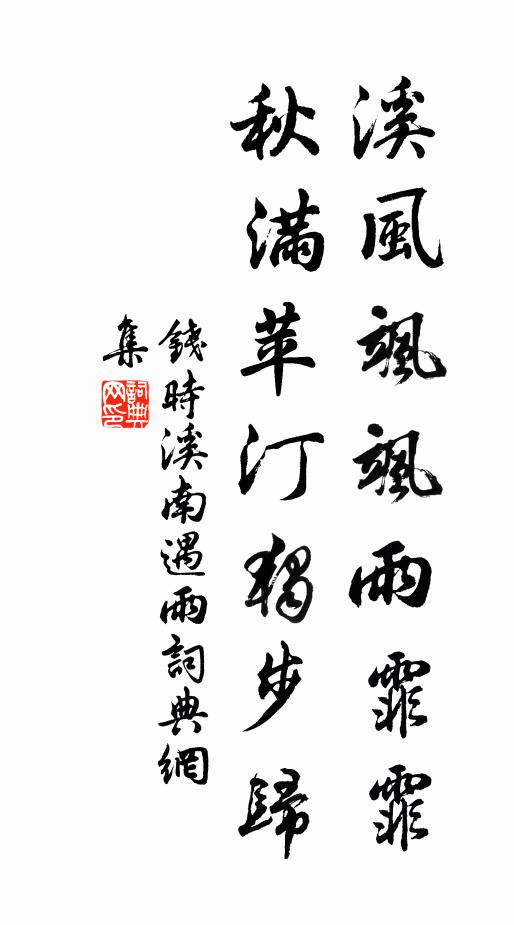 溪風颯颯雨霏霏
秋滿苹汀獨步歸
錢時溪南遇雨詞典網
集
詞典網印